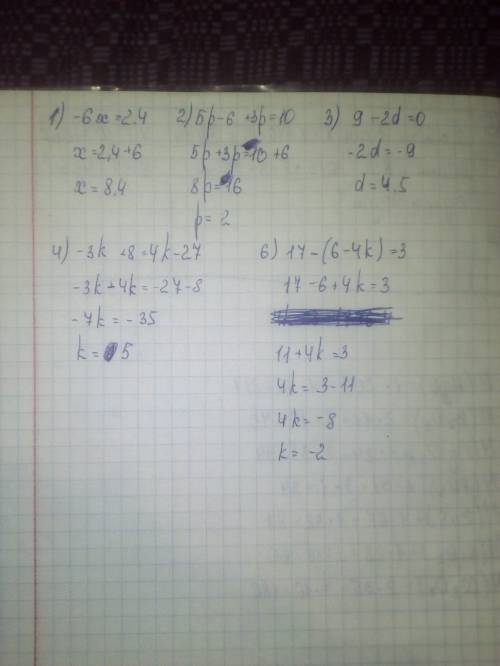 1) -6x=2.4
x=2,4+6
x=8,4
2) 5p-6+3p=10
5p+3p=10+6
8p=16
p=2
3) 9-2d=0
-2d=-9
d=4.5
4) -3k+8=4k-27
-3k+4k=-27-8
-7k=-35
k=5
6) 17-(6-4k)=3
17-6+4k=3
11+4k=3
4k=3-11
4k=-8
k=-2